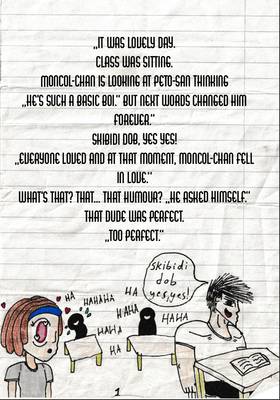 „IT WAS LOVELY DAY.
CLASS WAS SITTING.
MONCOL-CHAN IS LOOKING AT PETO-SAN THINKING
„HE'S SUCH A BASIC BOI.“ BUT NEXT WORDS CHANGED HIM
FOREVER.“
SKIBIDI DOB, YES YES!
„EVERYONE LOVED AND AT THAT MOMENT, MONCOL-CHAN FELL
IN LOVE.“
WHAT'S THAT? THAT... THAT HUMOUR? „HE ASKED HIMSELF.“
THAT DUDE WAS PERFECT.
„TOO PERFECT.“
skibidi
dob
yes,yes!
HA
HAHAHA
HA
HAHA
HAHA
HA
HA
HAHA
1